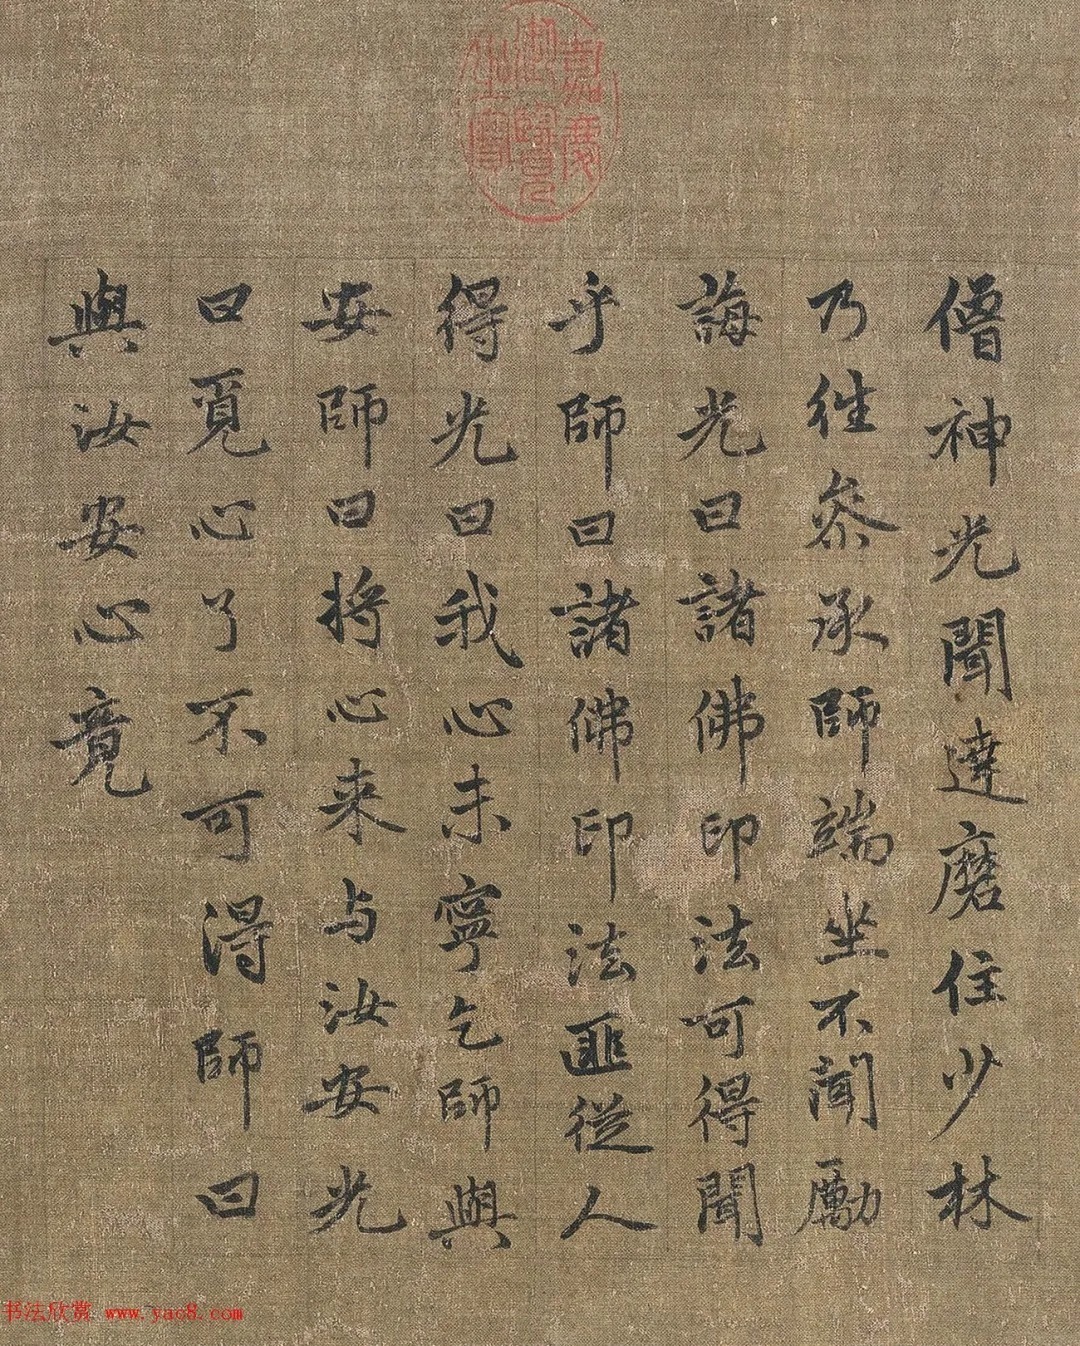 嘉慶御覽之寶
僧神光聞達磨住少林
乃往叅承師端坐不聞勵
誨光曰諸佛印法可得聞
乎師曰諸佛印法匪從人
得光曰我心未寧乞師與
安師曰将心来与汝安光
曰覓心了不可得師曰
與汝安心竟
书法欣赏 www.yac8.com